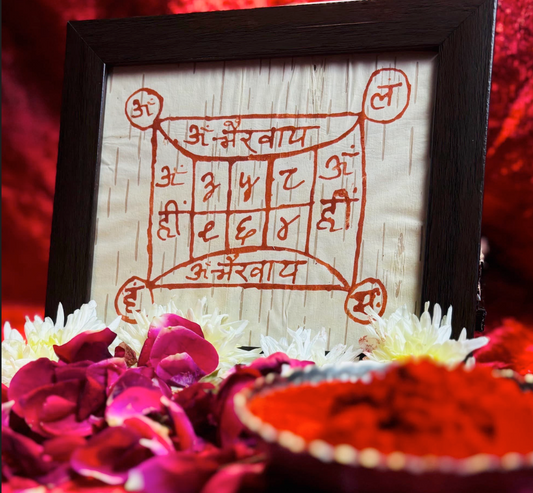 ॐ ल
ॐ भैरवाय
ॐ ३ ५ ८ ॐ
ह्रीं ९ ६ ४ ह्रीं
ॐ भैरवाय